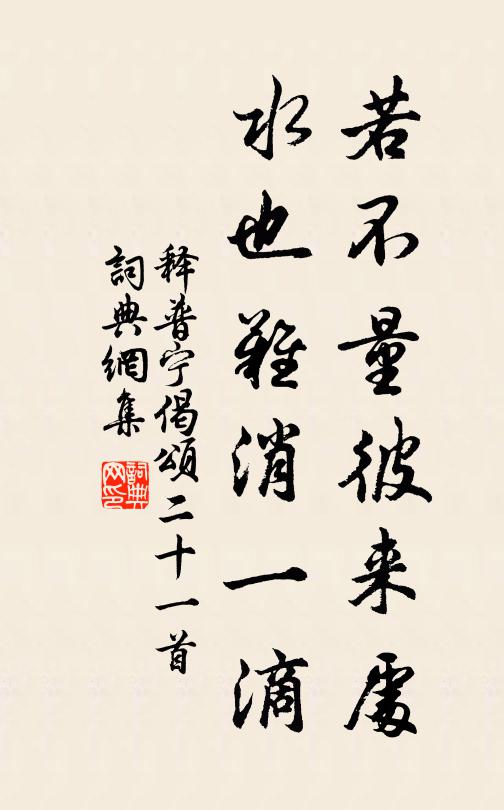 若不量彼来處
水也難消一滴
释普宁偈頌二十一首
詞典網集
詞典
网印